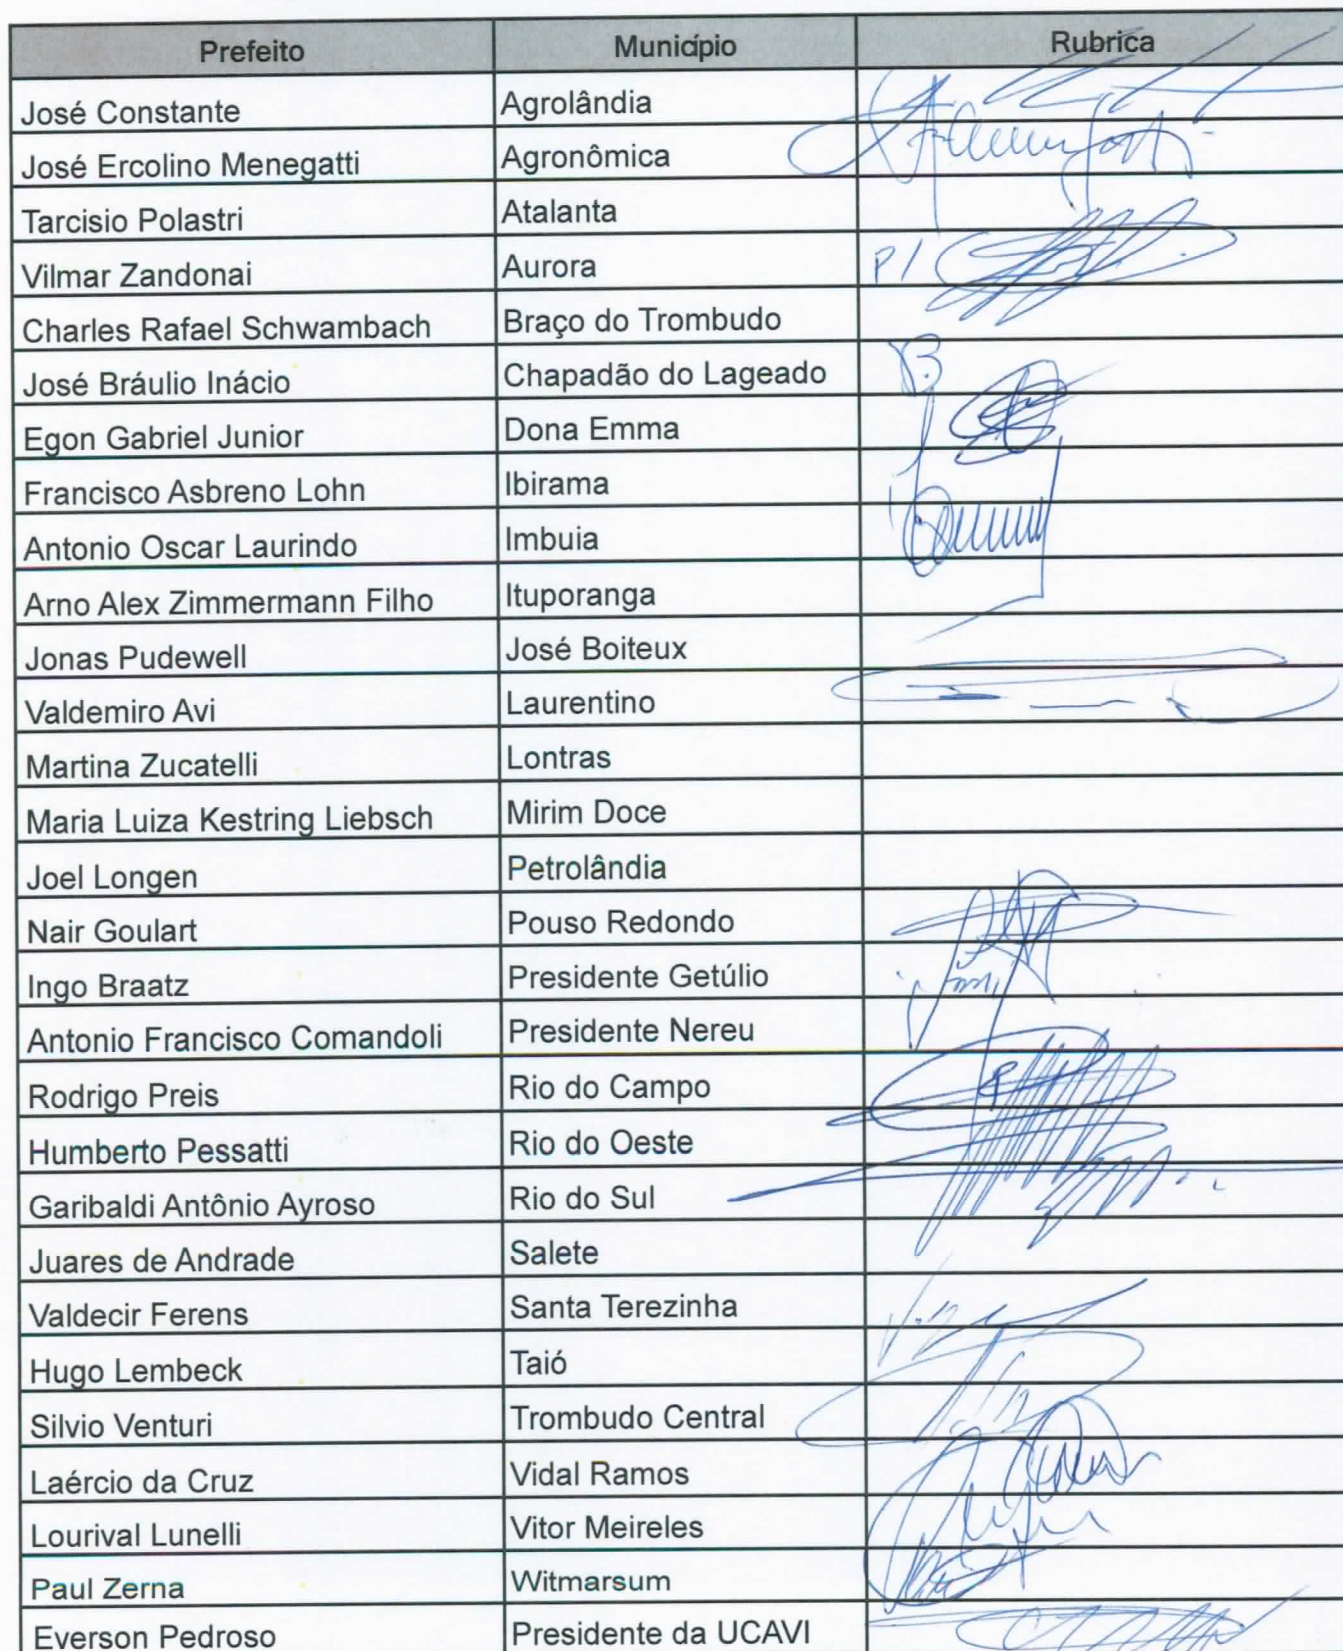 Prefeito Município Rubrica
José Constante Agrolândia
José Ercolino Menegatti Agronômica
Tarcisio Polastri Atalanta
Vilmar Zandonai Aurora P/
Charles Rafael Schwambach Braço do Trombudo
José Bráulio Inácio Chapadão do Lageado
Egon Gabriel Junior Dona Emma
Francisco Asbreno Lohn Ibirama
Antonio Oscar Laurindo Imbuia
Arno Alex Zimmermann Filho Ituporanga
Jonas Pudewell José Boiteux
Valdemiro Avi Laurentino
Martina Zucatelli Lontras
Maria Luiza Kestring Liebsch Mirim Doce
Joel Longen Petrolândia
Nair Goulart Pouso Redondo
Ingo Braatz Presidente Getúlio
Antonio Francisco Comandoli Presidente Nereu
Rodrigo Preis Rio do Campo
Humberto Pessatti Rio do Oeste
Garibaldi Antônio Ayroso Rio do Sul
Juares de Andrade Salete
Valdecir Ferens Santa Terezinha
Hugo Lembeck Taió
Silvio Venturi Trombudo Central
Laércio da Cruz Vidal Ramos
Lourival Lunelli Vitor Meireles
Paul Zerna Witmarsum
Everson Pedroso Presidente da UCAVI